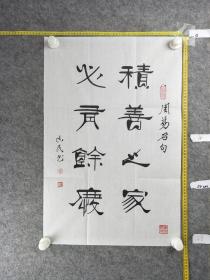 積善之家
必有餘慶
周易名句